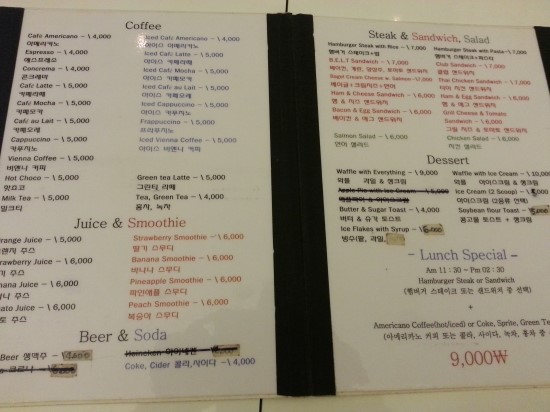 Coffee
Café Americano - \ 4,000
아메리카노
Espresso - \ 4,000
에스프레소
Concrema - \ 4,000
콘크레마
Café Latte - \ 5,000
카페 라떼
Café Mocha - \ 5,000
카페 모카
Café au Lait - \ 5,000
카페오레
Cappuccino - \ 5,000
카푸치노
Vienna Coffee - \ 5,000
비엔나 커피
Hot Choco - \ 5,000
핫쵸코
Milk Tea - \ 5,000
밀크티
Iced Café Americano - \ 4,000
아이스 아메리카노
Iced Café Latte - \ 5,000
아이스 카페라떼
Iced Café Mocha - \ 5,000
아이스 카페모카
Iced Café au Lait - \ 5,000
아이스 카페오레
Iced Cappuccino - \ 5,000
아이스 카푸치노
Frappuccino - \ 5,000
프라푸치노
Iced Vienna Coffee - \ 5,000
아이스 비엔나 커피
Green tea Latte - \ 5,000
그린티 라떼
Tea, Green Tea - \ 4,000
홍차, 녹차
Juice & Smoothie
range Juice - \ 5,000
렌지 주스
Juice - \ 6,000
주스
Banana Juice - \ 6,000
바나나 주스
nato Juice - \ 6,000
토 주스
Strawberry Smoothie - \ 6,000
딸기 스무디
Banana Smoothie - \ 6,000
바나나 스무디
Pineapple Smoothie - \ 6,000
파인애플 스무디
Peach Smoothie - \ 6,000
복숭아 스무디
Beer & Soda
Beer 생맥주 - \
Heineken 아이네켄 - \
Coke, Cider 콜라,사이다 - \ 4,000
Steak & Sandwich, Salad
Hamburger Steak with Rice - \ 7,000
햄버거 스테이크+밥
B.E.L.T Sandwich - \ 7,000
베이컨, 계란, 양상추, 토마토, 샌드위치
Bagel Cream Cheese w. Salmon - \ 7,000
베이글+크림치즈+연어
Ham & Cheese Sandwich - \ 6,000
햄 & 치즈 샌드위치
Bacon & Egg Sandwich - \ 6,000
베이컨 & 에그 샌드위치
Salmon Salad - \ 6,000
연어 샐러드
Hamburger Steak with Pasta - \ 7,000
햄버거 스테이크+파스타
Club Sandwich - \ 7,000
클럽 샌드위치
Thai Chicken Sandwich - \ 7,000
타이 치킨 샌드위치
Ham & Egg Sandwich - \ 6,000
햄 & 에그 샌드위치
Grill Cheese & Tomato
Sandwich - \ 6,000
그릴 치즈 & 토마토 샌드위치
Chicken Salad - \ 6,000
치킨 샐러드
Dessert
Waffle with Everything - \ 9,000
와플 과일 & 앵크림
Apple Pie with Ice Cream - \ 5,000
Butter & Sugar Toast - \ 4,000
버터 & 슈가 토스트
Ice Flakes with Syrup - \
빙수(팥, 과일,
Waffle with Ice Cream - \ 10,000
와플 아이스크림 & 앵크림
Ice Cream (2 Scoop) - \
아이스크림 (2종류 선택)
Soybean flour Toast - \ 6,000
콩고물 토스트 + 앵크림
- Lunch Special -
Am 11 : 30 - Pm 02 : 30
Hamburger Steak or Sandwich
(햄버거 스테이크 또는 샌드위치 중 선택)
+
Americano Coffee(hot/iced) or Coke, Sprite, Green Te
(아메리카노 커피 또는 콜라, 사이다, 녹차, 홍차 중
9,000₩